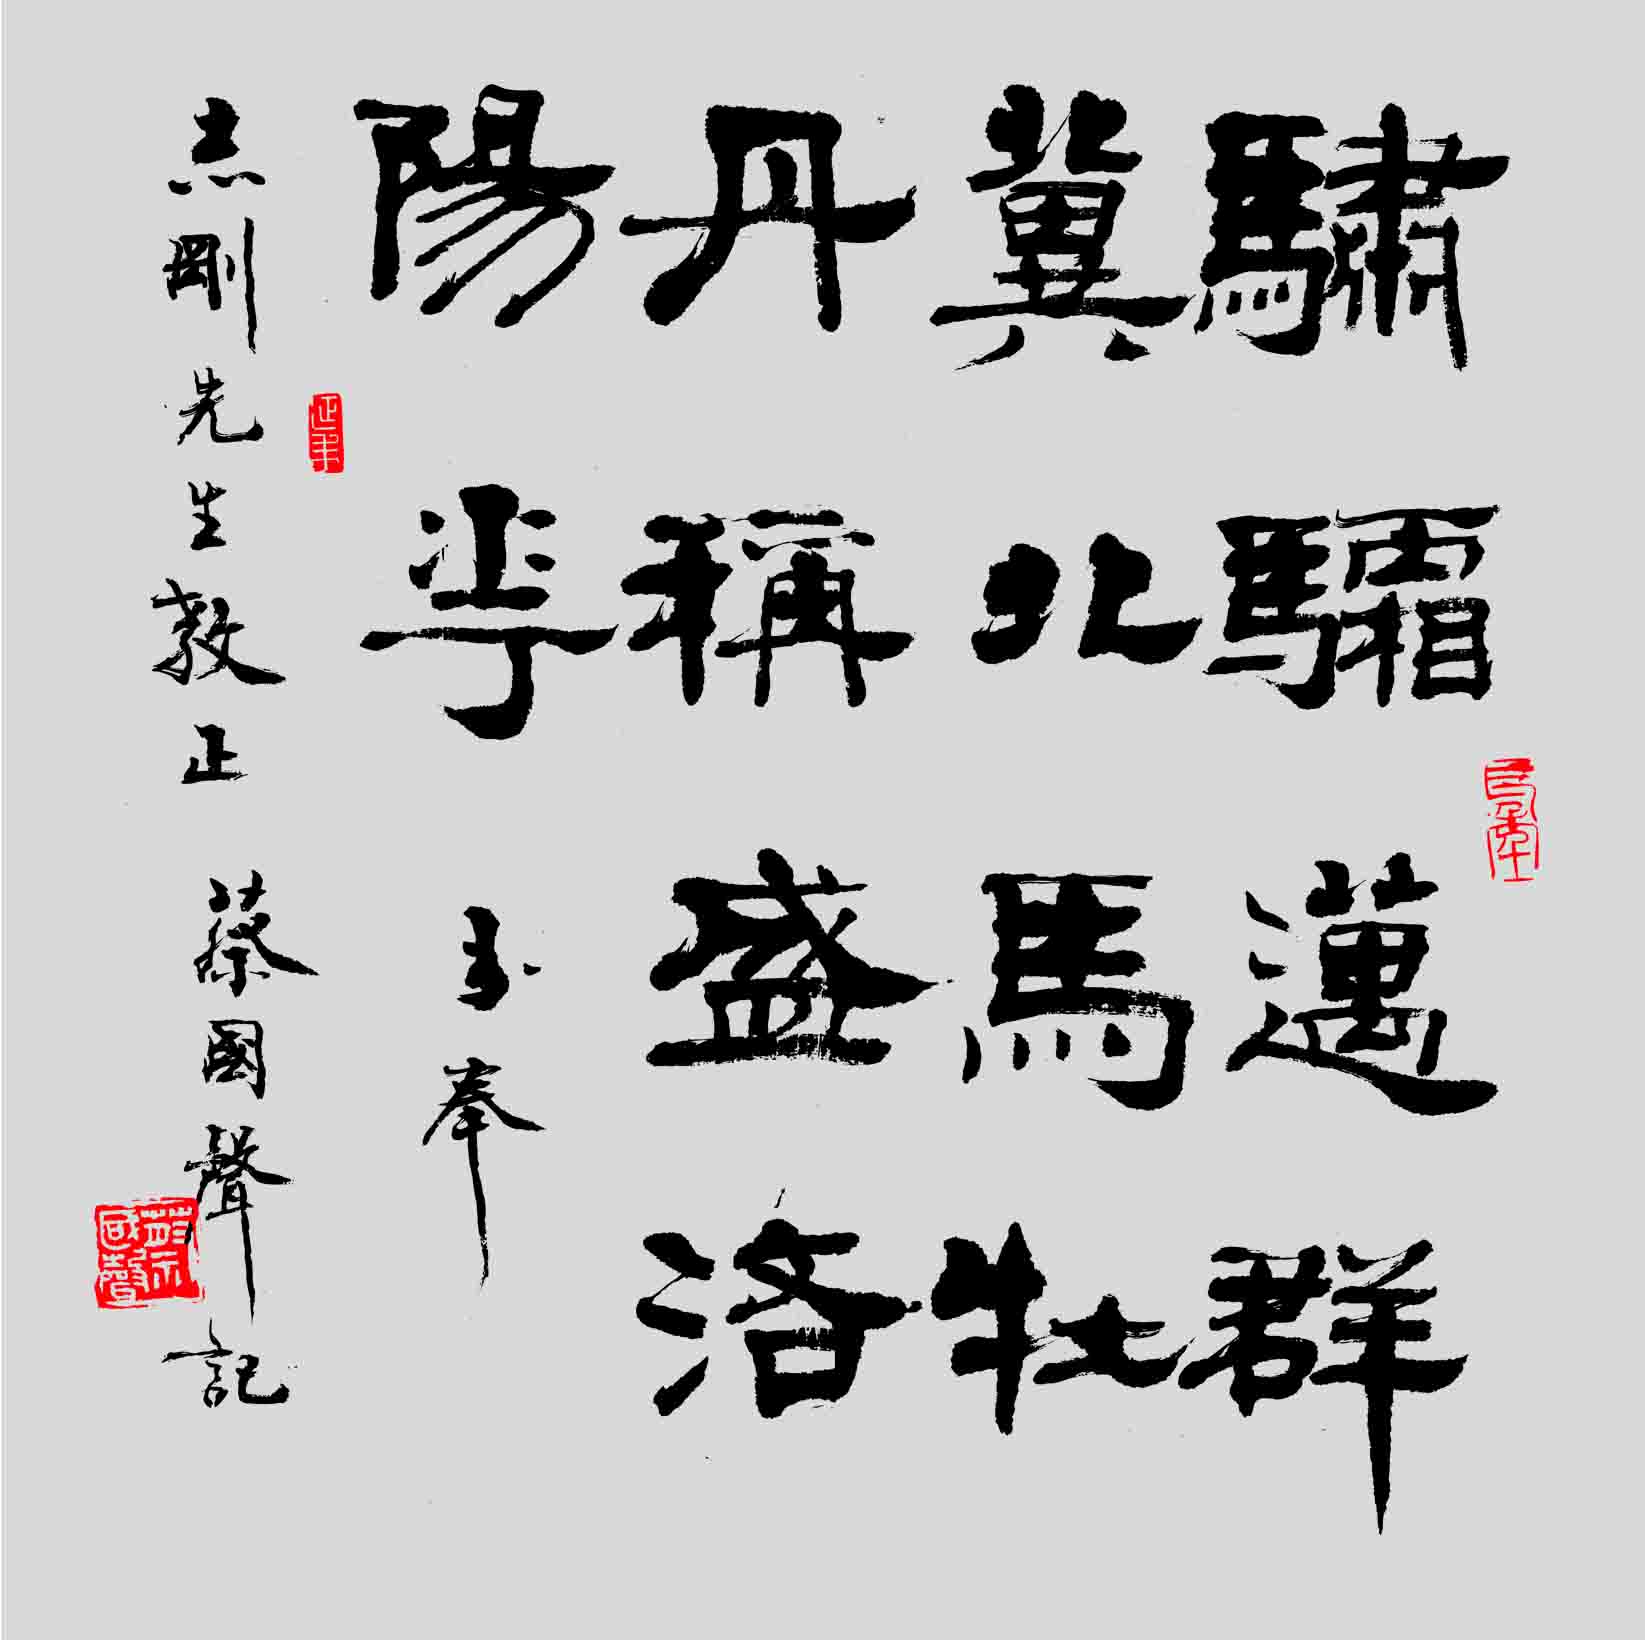 驌驦邁群
冀北馬牡
丹稱盛洛
陽華 玉奉
志剛先生教正 蔡國聲記
蔡國聲